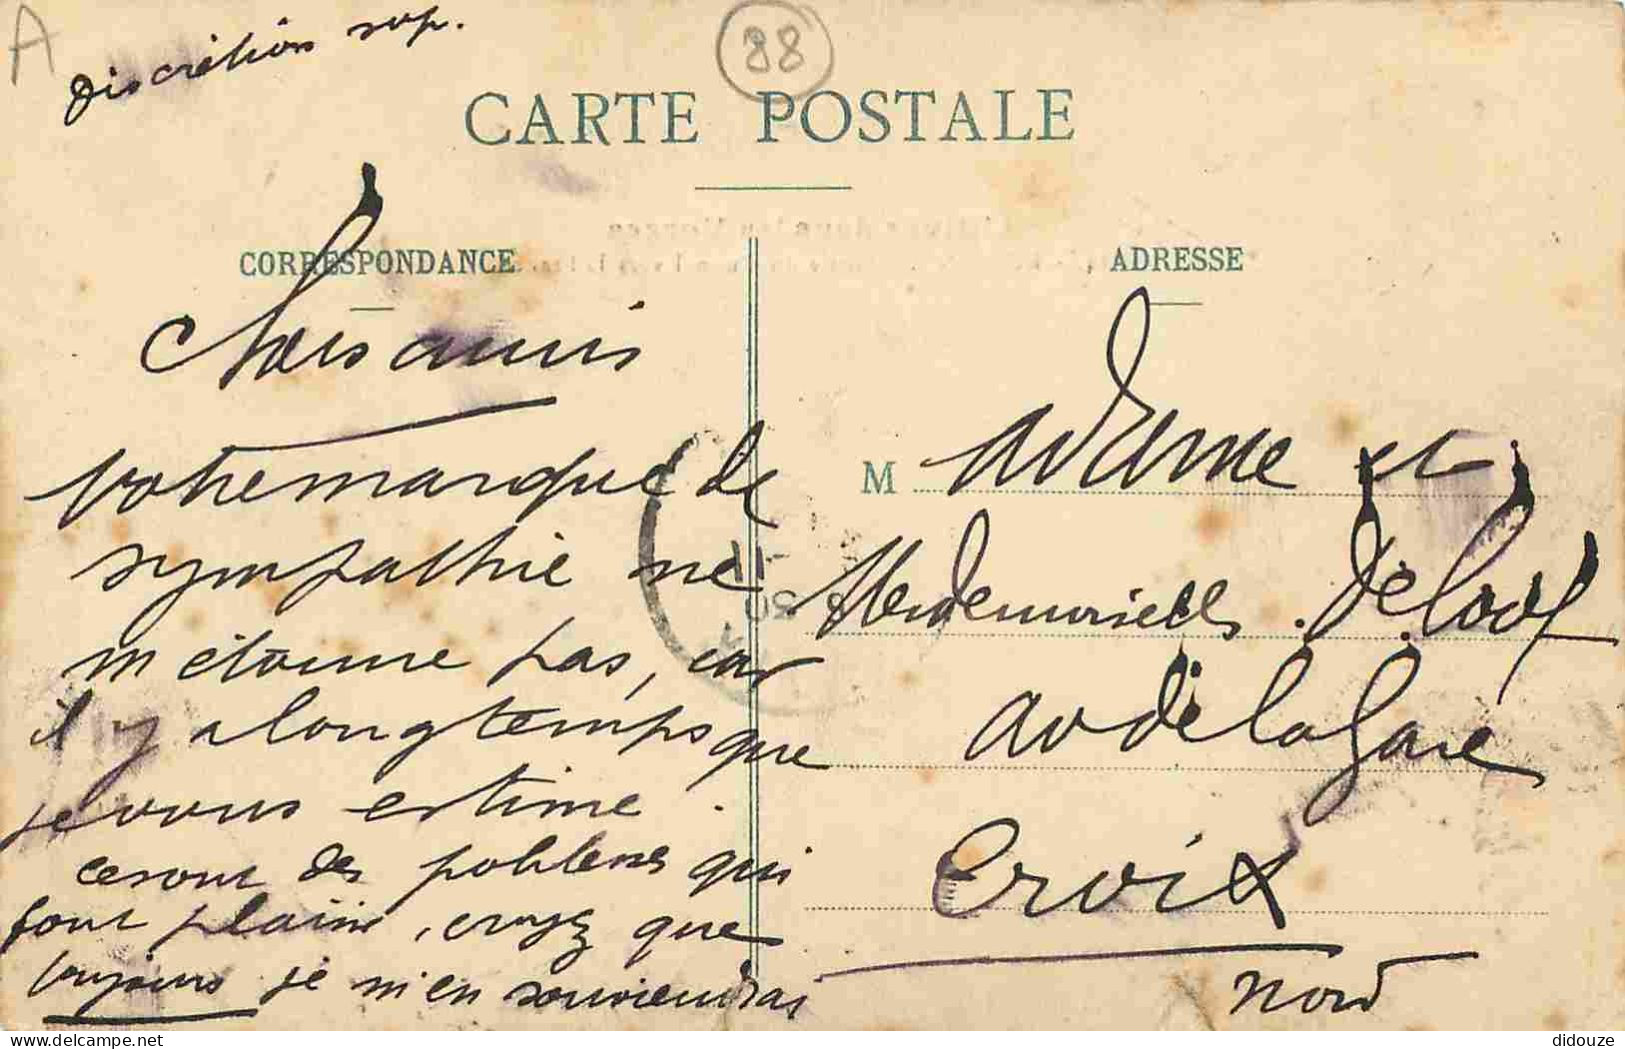 A
discrétion svp.
88
CARTE POSTALE
CORRESPONDANCE
ADRESSE
Chers amis
votre marque de
sympathie ne
m'étonne pas, car
il y a longtemps que
je vous estime.
ce sont des poblemes qui
font plaisir, croyez que
toujours je m'en souviendrai
M adame et
Mesdemoiselles Delooz
av de la Gare
Croix
Nord
didouze
delcampe.net